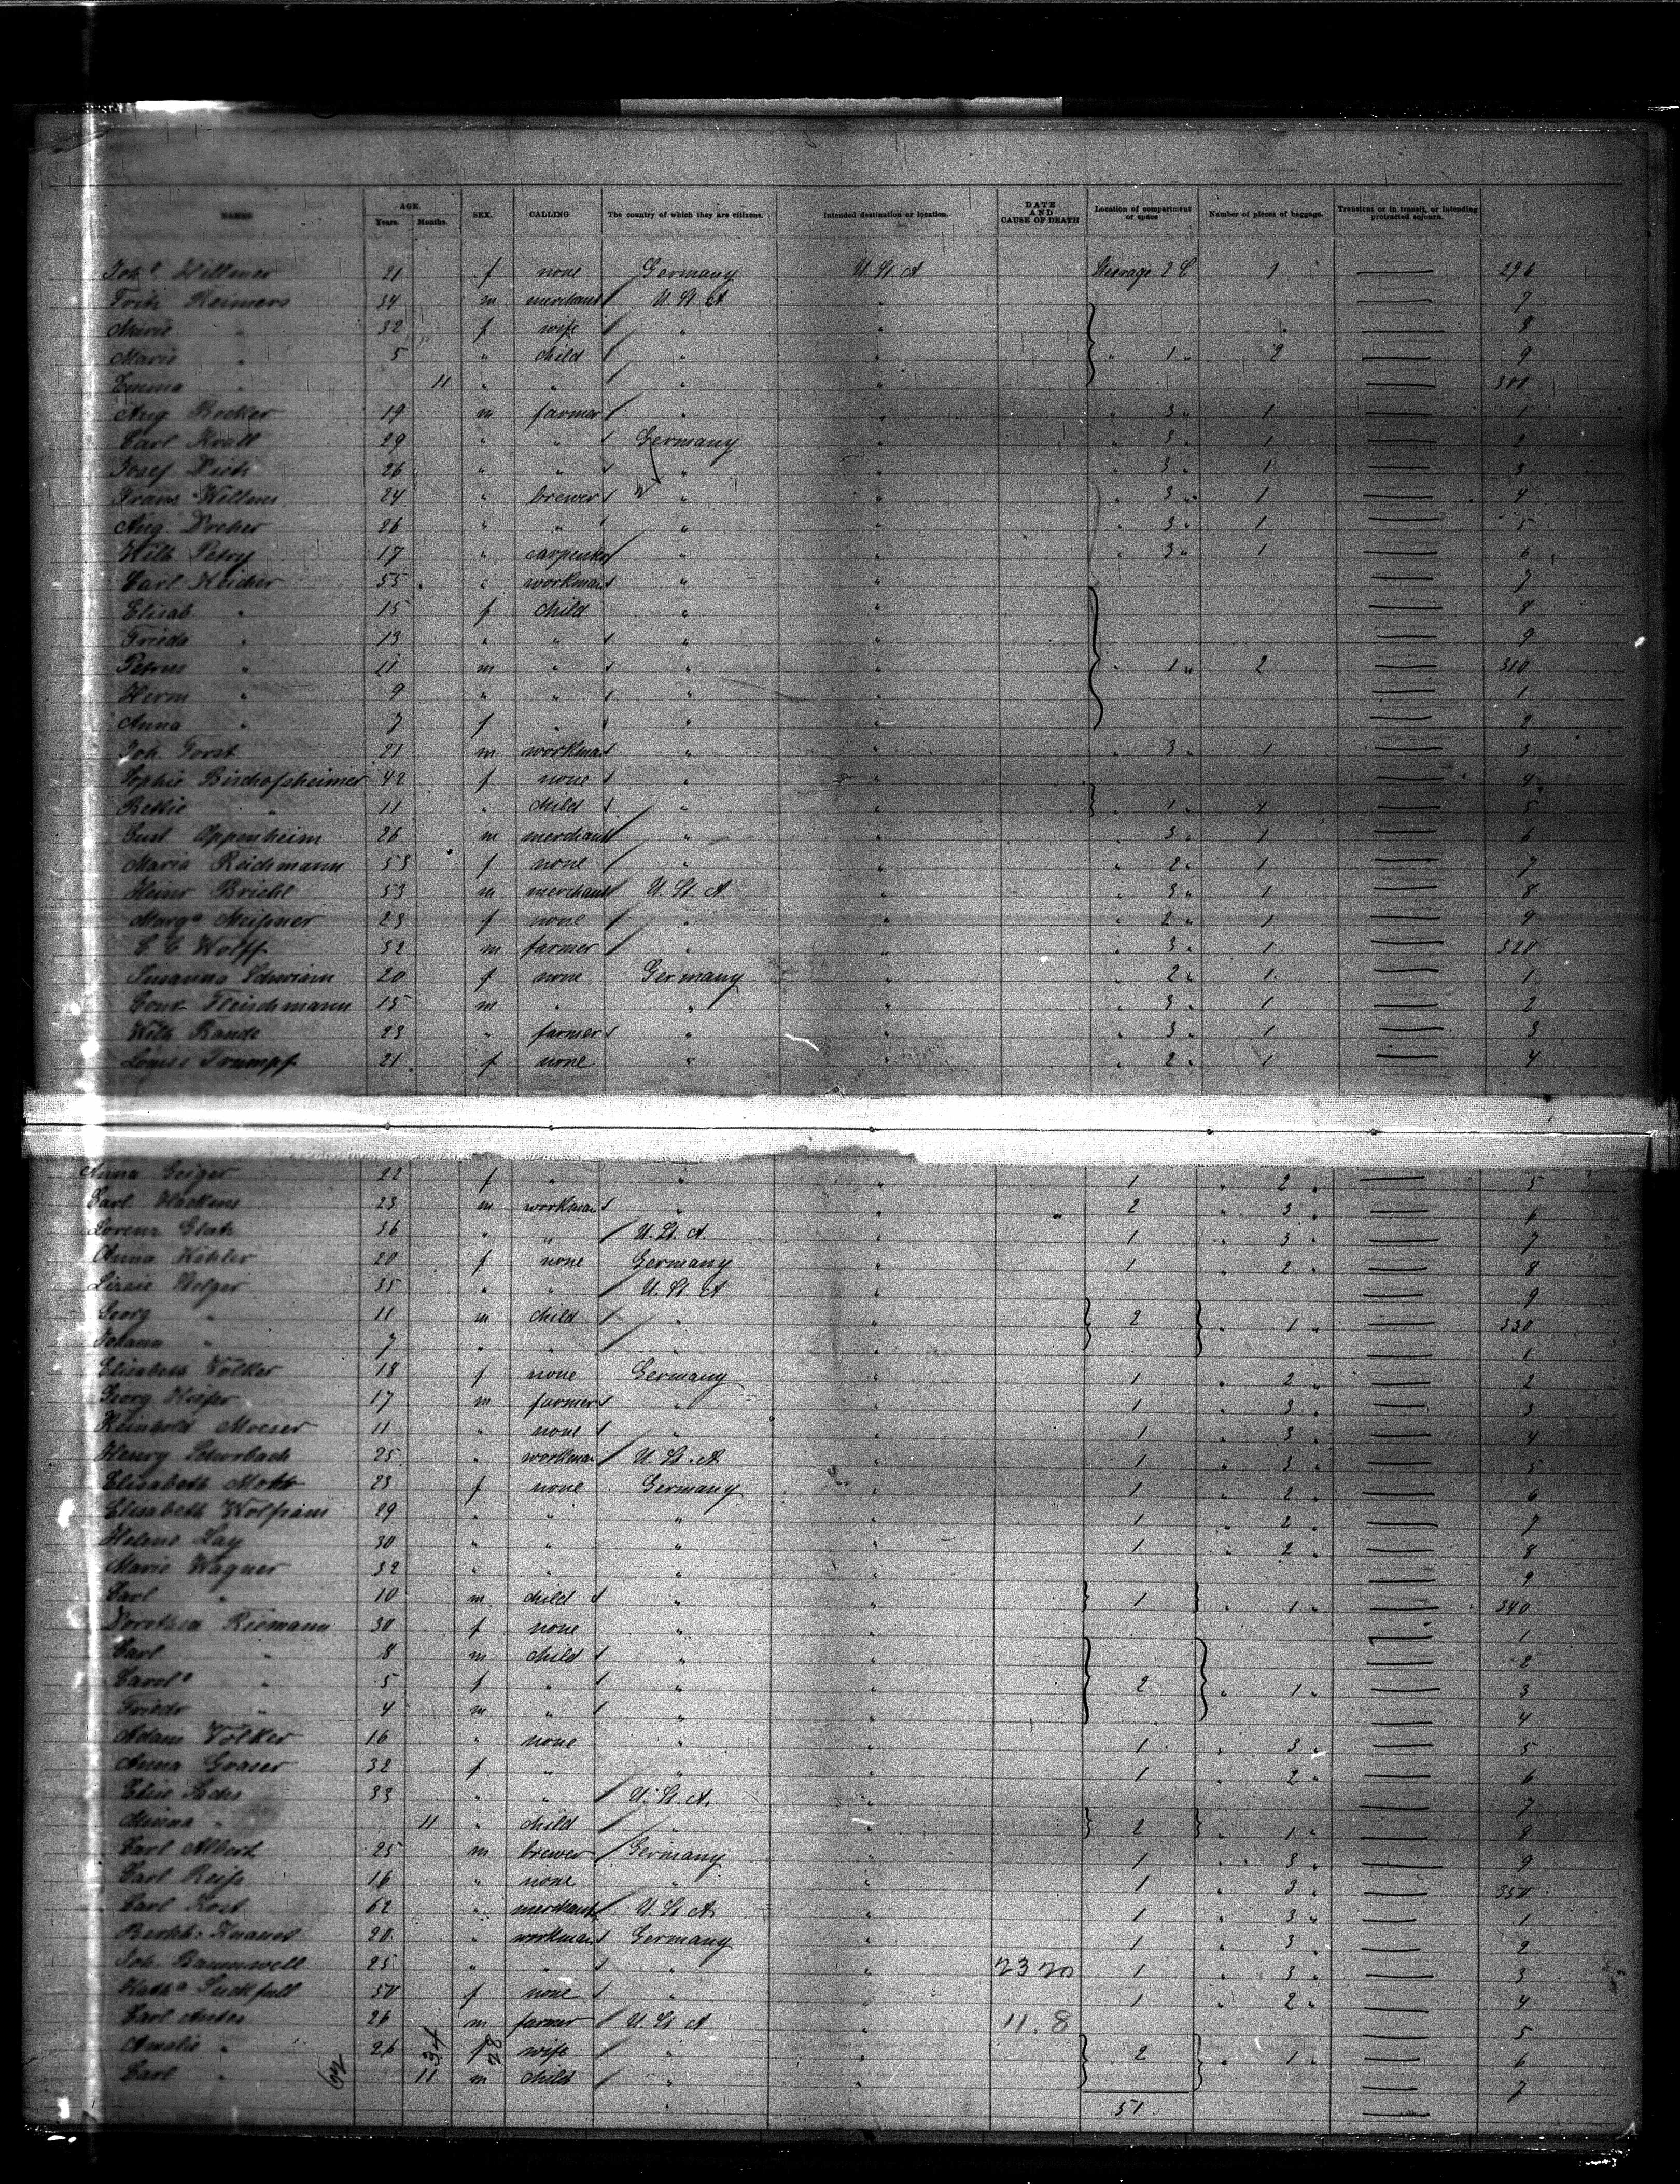 NAMES AGE. Years. Months. SEX. CALLING The country of which they are citizens. Intended destination or location. DATE AND CAUSE OF DEATH Location of compartment or space Number of pieces of baggage. Transient or in transit, or intending protracted sojourn.
21 f none Germany U. St. A Steerage 2 1 296
Fritz Reimers 34 m merchant U. St. A " 7
Marie " 32 f wife " " 8
Marie " 5 " child " " " 1 " 2 9
Emma " 11 " " " " 300
Aug. Becker 19 m farmer " " " 3 " 1 1
Carl Krall 29 " " Germany " " 3 " 1 2
Josef 26 " " " " " 3 " 1 3
Franz Willms 24 " brewer " " " 3 " 1 4
Aug. Dreher 26 " " " " " 3 " 1 5
Wilh Petry 17 " carpenter " " " 3 " 1 6
Carl 55 " workman " " 7
Elisab " 15 f child " " 8
Frieda " 13 " " " " 9
Petrus " 11 m " " " " 1 " 2 310
Herm " 9 " " " " 1
Anna " 7 f " " " 2
Joh. Forst 21 m workman " " " 3 " 1 3
Sophie Bischofsheimer 42 f none " " 4
Bettie " 11 " child " " " 1 " 4 5
Gust Oppenheim 26 m merchant " " 3 " 1 6
Maria Reichmann 53 f none " " " 2 " 1 7
Heinr Briehl 53 m merchant U. St. A " " 3 " 1 8
Marga Meißner 23 f none " " " 2 " 1 9
C. C. Wolff 32 m farmer " " " 3 " 1 320
Susanna Schwiam 20 f none Germany " " 2 " 1 1
Conr. Fleischmann 15 m " " " " 3 " 1 2
Wilh Bande 23 " farmer " " " 3 " 1 3
Louise Trumpf 21 f none " " " 2 " 1 4
Anna Geiger 22 f " " " 1 " 2 " 5
Carl Hackens 23 m workman " " 2 " 3 " 6
Lorenz Glah 36 " " U. St. A " 1 " 3 " 7
Anna Köhler 20 f none Germany " 1 " 2 " 8
Lizzie 35 " " U. St. A " 9
Georg " 11 m child " " 2 " 1 " 330
Johann " 7 " " " " 1
Elisabeth Völker 18 f none Germany " 1 " 2 " 2
Georg 17 m farmer " " 1 " 3 " 3
Reinhold Moeser 11 " none " " 1 " 3 " 4
Henry Schorbach 25 " workman U. St. A " 1 " 3 " 5
Elisabeth 23 f none Germany " 1 " 2 " 6
Elisabeth Wolfram 29 " " " " 1 " 2 " 7
Helene Lay 30 " " " " 1 " 2 " 8
Marie Wagner 32 " " " " 9
Carl " 10 m child " " 1 " 1 " 340
Dorothea Riemann 30 f none " " 1
Carl " 8 m child " " 2
" 5 f " " " 2 " 1 " 3
Friedr " 4 m " " " 4
Adam Völker 16 " none " " 1 " 3 " 5
Anna Graser 32 f " " " 1 " 2 " 6
Elise Sachs 33 " " U. St. A. " 7
Minna " 11 " child " " 2 " 1 " 8
Carl Albert 25 m brewer Germany " 1 " 3 " 9
Carl Reiß 16 " none " " 1 " 3 " 350
Carl Kost 62 " merchant U. St. A. " 1 " 3 " 1
Knauer 20 " workman Germany " 1 " 3 " 2
Joh. 25 " " " " 23 20 1 " 3 " 3
Kath.a Suckfull 50 f none " " 1 " 2 " 4
Carl Antes 26 m farmer U. St. A " 11. 8 5
Amalie " 26 f wife " " 2 " 1 " 6
Carl " 11 m child " " 7
62 134 28 51